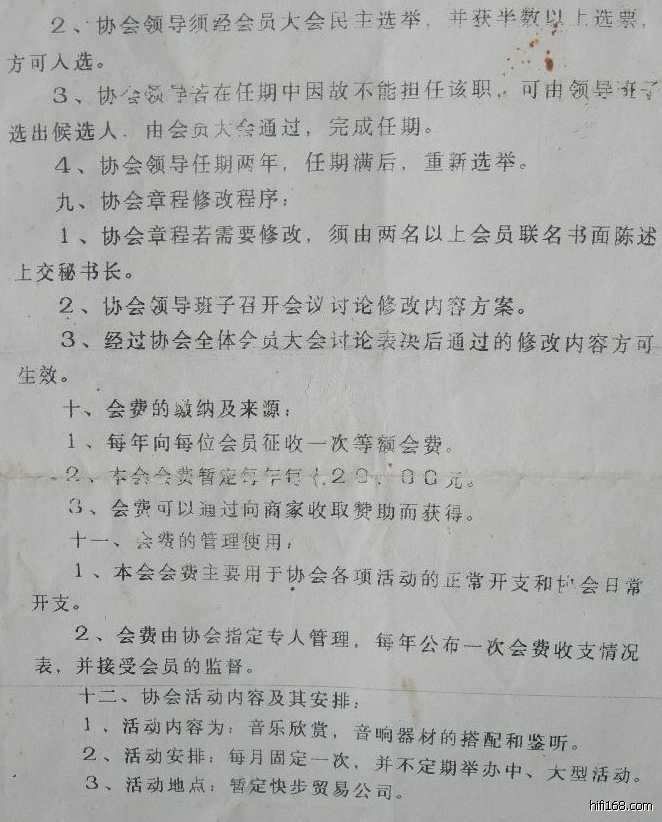 2、协会领导须经会员大会民主选举，并获半数以上选票，
方可入选。
3、协会领导若在任期中因故不能担任该职，可由领导班子
选出候选人，由会员大会通过，完成任期。
4、协会领导任期两年，任期满后，重新选举。
九、协会章程修改程序：
1、协会章程若需要修改，须由两名以上会员联名书面陈述
上交秘书长。
2、协会领导班子召开会议讨论修改内容方案。
3、经过协会全体会员大会讨论表决后通过的修改内容方可
生效。
十、会费的缴纳及来源：
1、每年向每位会员征收一次等额会费。
2、本会会费暂定每年每人20．00元。
3、会费可以通过向商家收取赞助而获得。
十一、会费的管理使用：
1、本会会费主要用于协会各项活动的正常开支和协会日常
开支。
2、会费由协会指定专人管理，每年公布一次会费收支情况
表，并接受会员的监督。
十二、协会活动内容及其安排：
1、活动内容为：音乐欣赏，音响器材的搭配和鉴听。
2、活动安排：每月固定一次，并不定期举办中、大型活动。
3、活动地点：暂定快步贸易公司。
hifi168.com